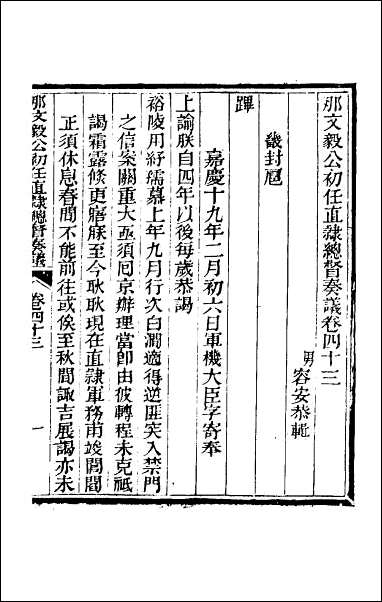 那文毅公初任直隸總督奏議卷四十三
男容安恭輯
畿封扈
蹕
嘉慶十九年二月初六日軍機大臣字寄奉
上諭朕自四年以後每歲恭謁
裕陵用紓孺慕上年九月行次白澗適得逆匪突入禁門
之信案關重大亟須囘京辦理當卽由彼轉程未克祗
謁霜露候更寤寐至今耿耿現在直隸軍務甫竣閭閻
正須休息春間不能前往或俟至秋間諏吉展謁亦未
那文毅公初任直隸總督奏議
卷四十三
一